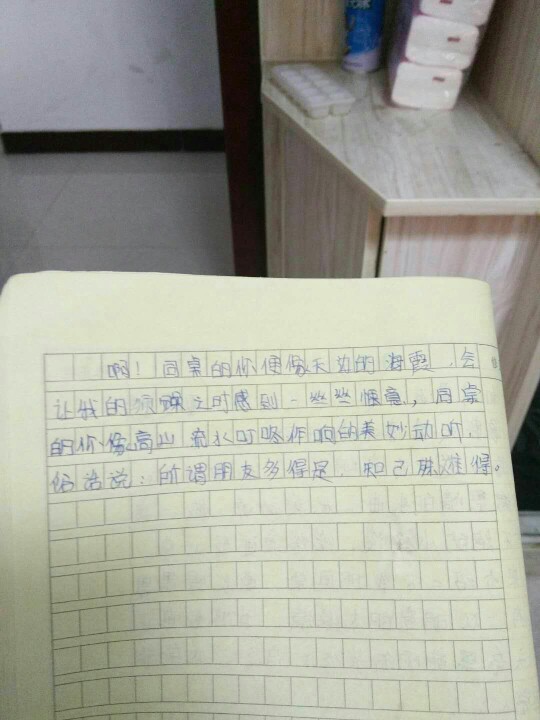 啊！同桌的你便像天边的海霞，会
让我的烦躁之时感到一丝丝惬意，同桌
的你像高山流水叮咚作响的美妙动听，
俗话说：所谓朋友多得是，知己难得。